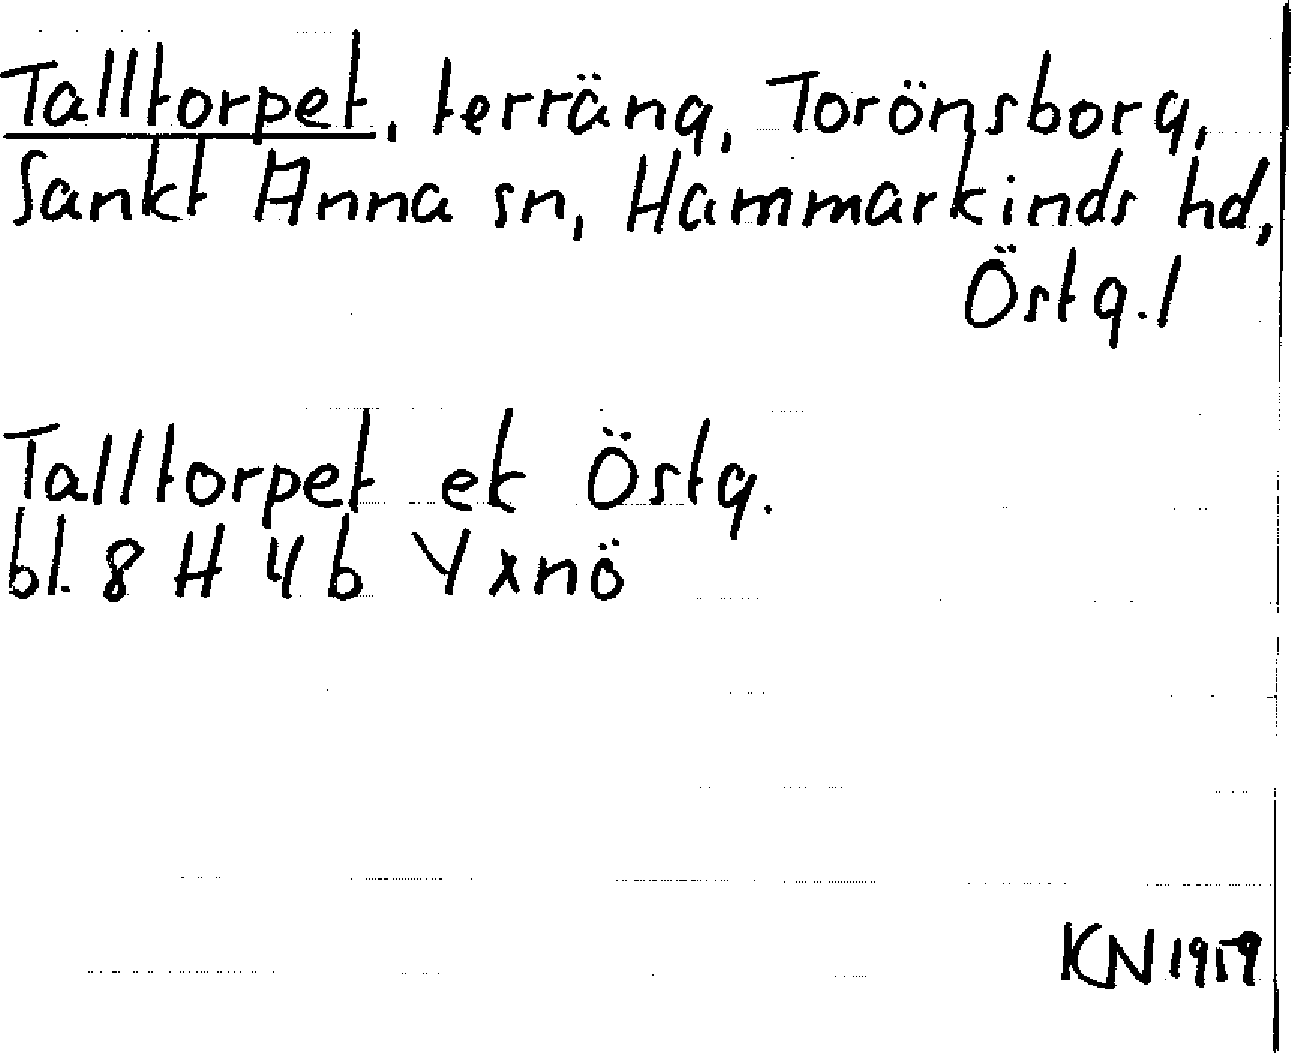 Talltorpet, terräng, Torönsborg,
Sankt Anna sn, Hammarkinds hd,
Östg. l
Talltorpet ek Östg.
bl. 8 H 4 b Yxnö
KN 1959